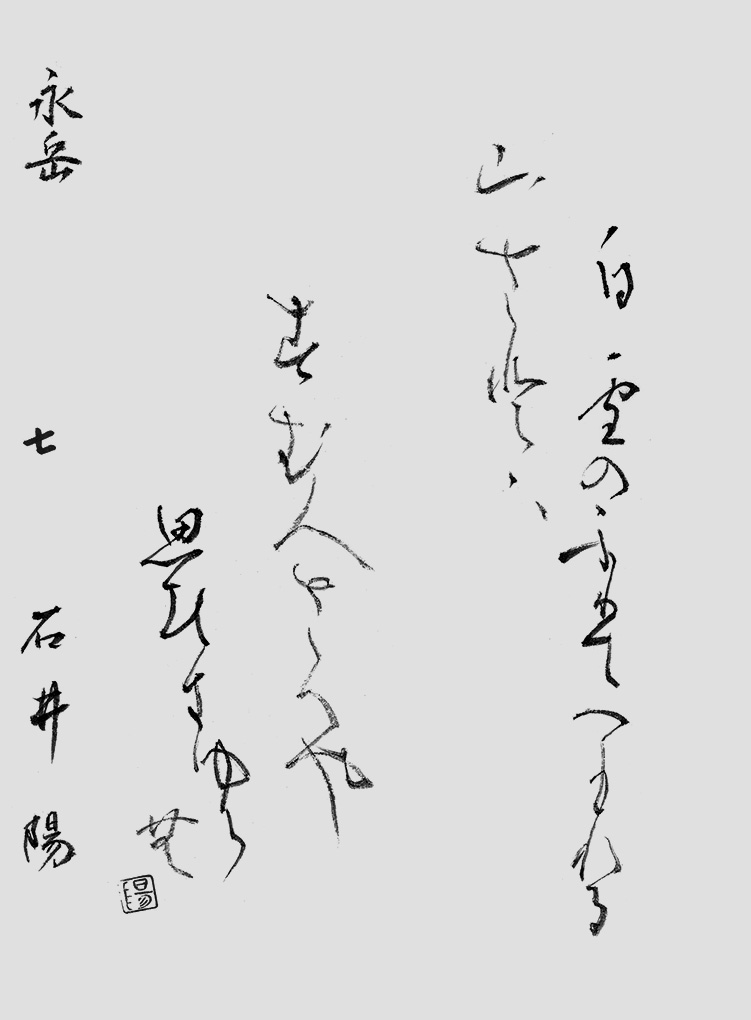 白雪のふりてつもれる
山さとハ
すむ人さへや
思ひきゆら
無
永岳 七 石井陽
陽